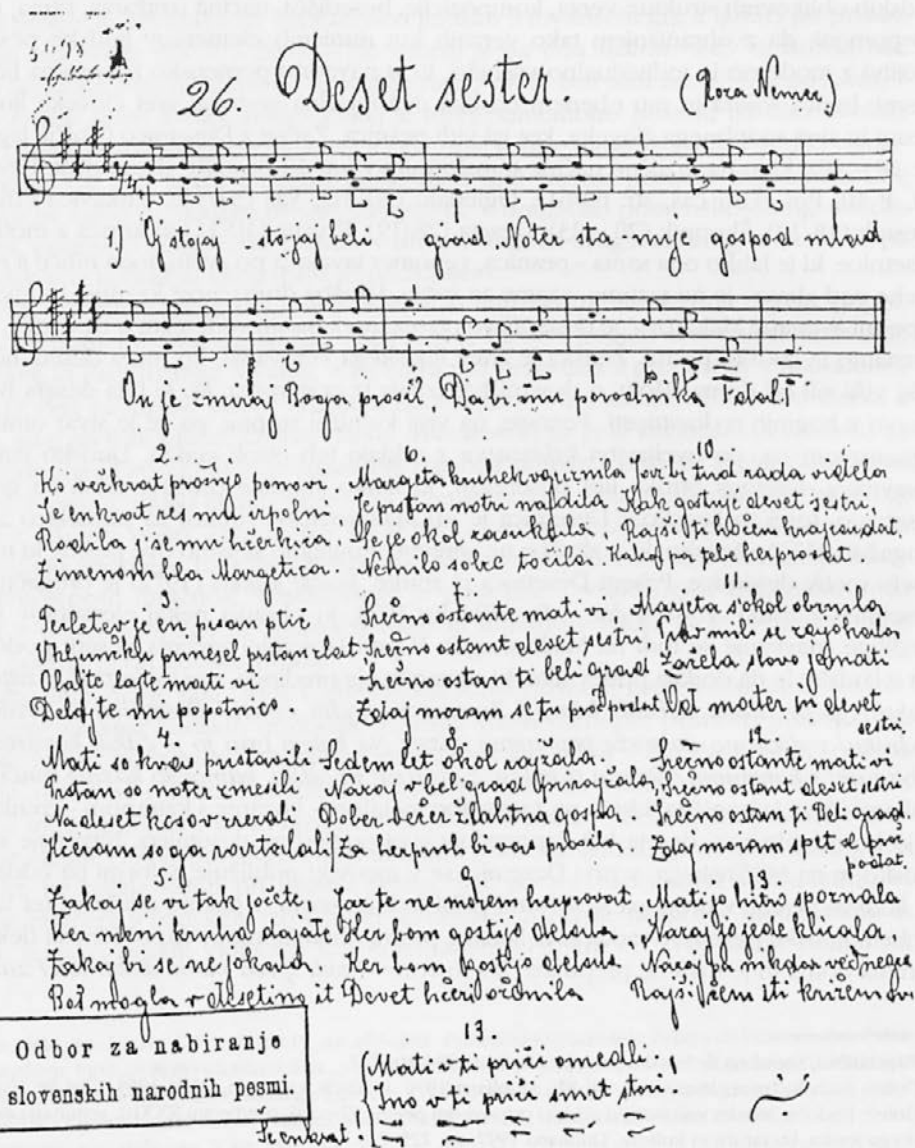 26. Deset sester (Roza Nemec)
1) Oj stojaj stojaj beli grad. Noter stanuje gospod mlad
On je zmiraj Boga prosil. Da bi mu porodnika dal.
2.
Ko večkrat prošnjo ponovi
Se enkrat res mu izpolni
Rodila se je mu hčerkica.
Z imenam bla Margetica.
3.
Priletev je en pisan ptič
V kljunčku prnesel prstan zlat
Olajte lajte mati vi
Delajte mi popotnico.
4.
Mati so kvas pristavili
Prstan so noter zmesili
Na deset kosov rezali
Hčeram so ga razdalali
5.
Zakaj se vi tak jočte,
Ker meni kruha dajate
Zakaj bi se ne jokala
Boš mogla v desetino it
6.
Margeta kruhek vgriznila
Je prstan notri najdila
Se je okol zasukala.
Nemilo solze točila.
7.
Srečno ostante mati vi
Srečno ostant deset sestri
Srečno ostan ti beli grad
Zdaj moram se tu prod podat.
8.
Sedem let okol rajžala.
Nazaj v bel grad prirajžala,
Dober večer žlahtna gospa.
Za herpruh bi vas prosila
9.
Jaz te ne morem herprovat
Ker bom gostijo delala.
Ker bom gostijo delala.
Devet hčeri ožénila
10.
Jaz bi tud rada videla
Kak gostuje devet sestri.
Rajši ti hočem vgun dat.
Kakor pa tebe herprovat.
11.
Marjeta s'okol obrnila
Prav milo se zajokala
Začela slovo jemati
Od mater in devet sestri
12.
Srečno ostante mati vi
Srečno ostant devet sestri
Srečno ostan ti beli grad.
Zdaj moram spet se proč podat.
13.
Mati jo hitro spoznala
Nazaj jo jede klicala.
Nazaj pa nikdar več ne grem
Rajši čem iti križem svet
13
Mati v ti priči omedli.
Ino v ti priči smrt stori
Se enkrat
Odbor za nabiranje
slovenskih narodnih pesmi.